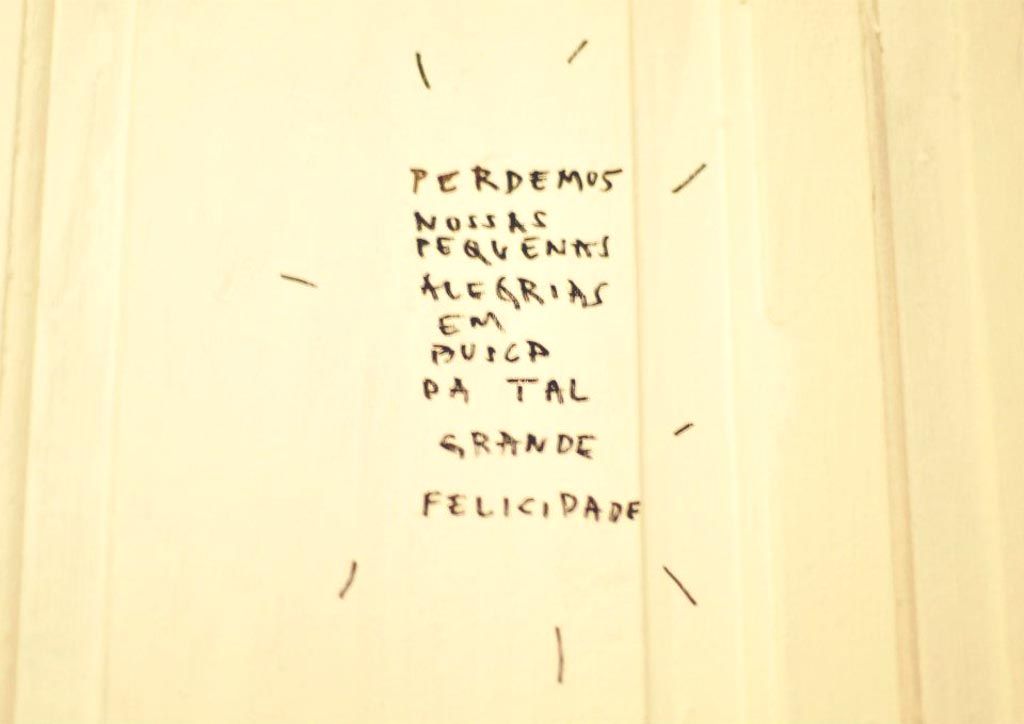 PERDEMOS
NOSSAS
PEQUENAS
ALEGRIAS
EM
BUSCA
DA TAL
GRANDE
FELICIDADE